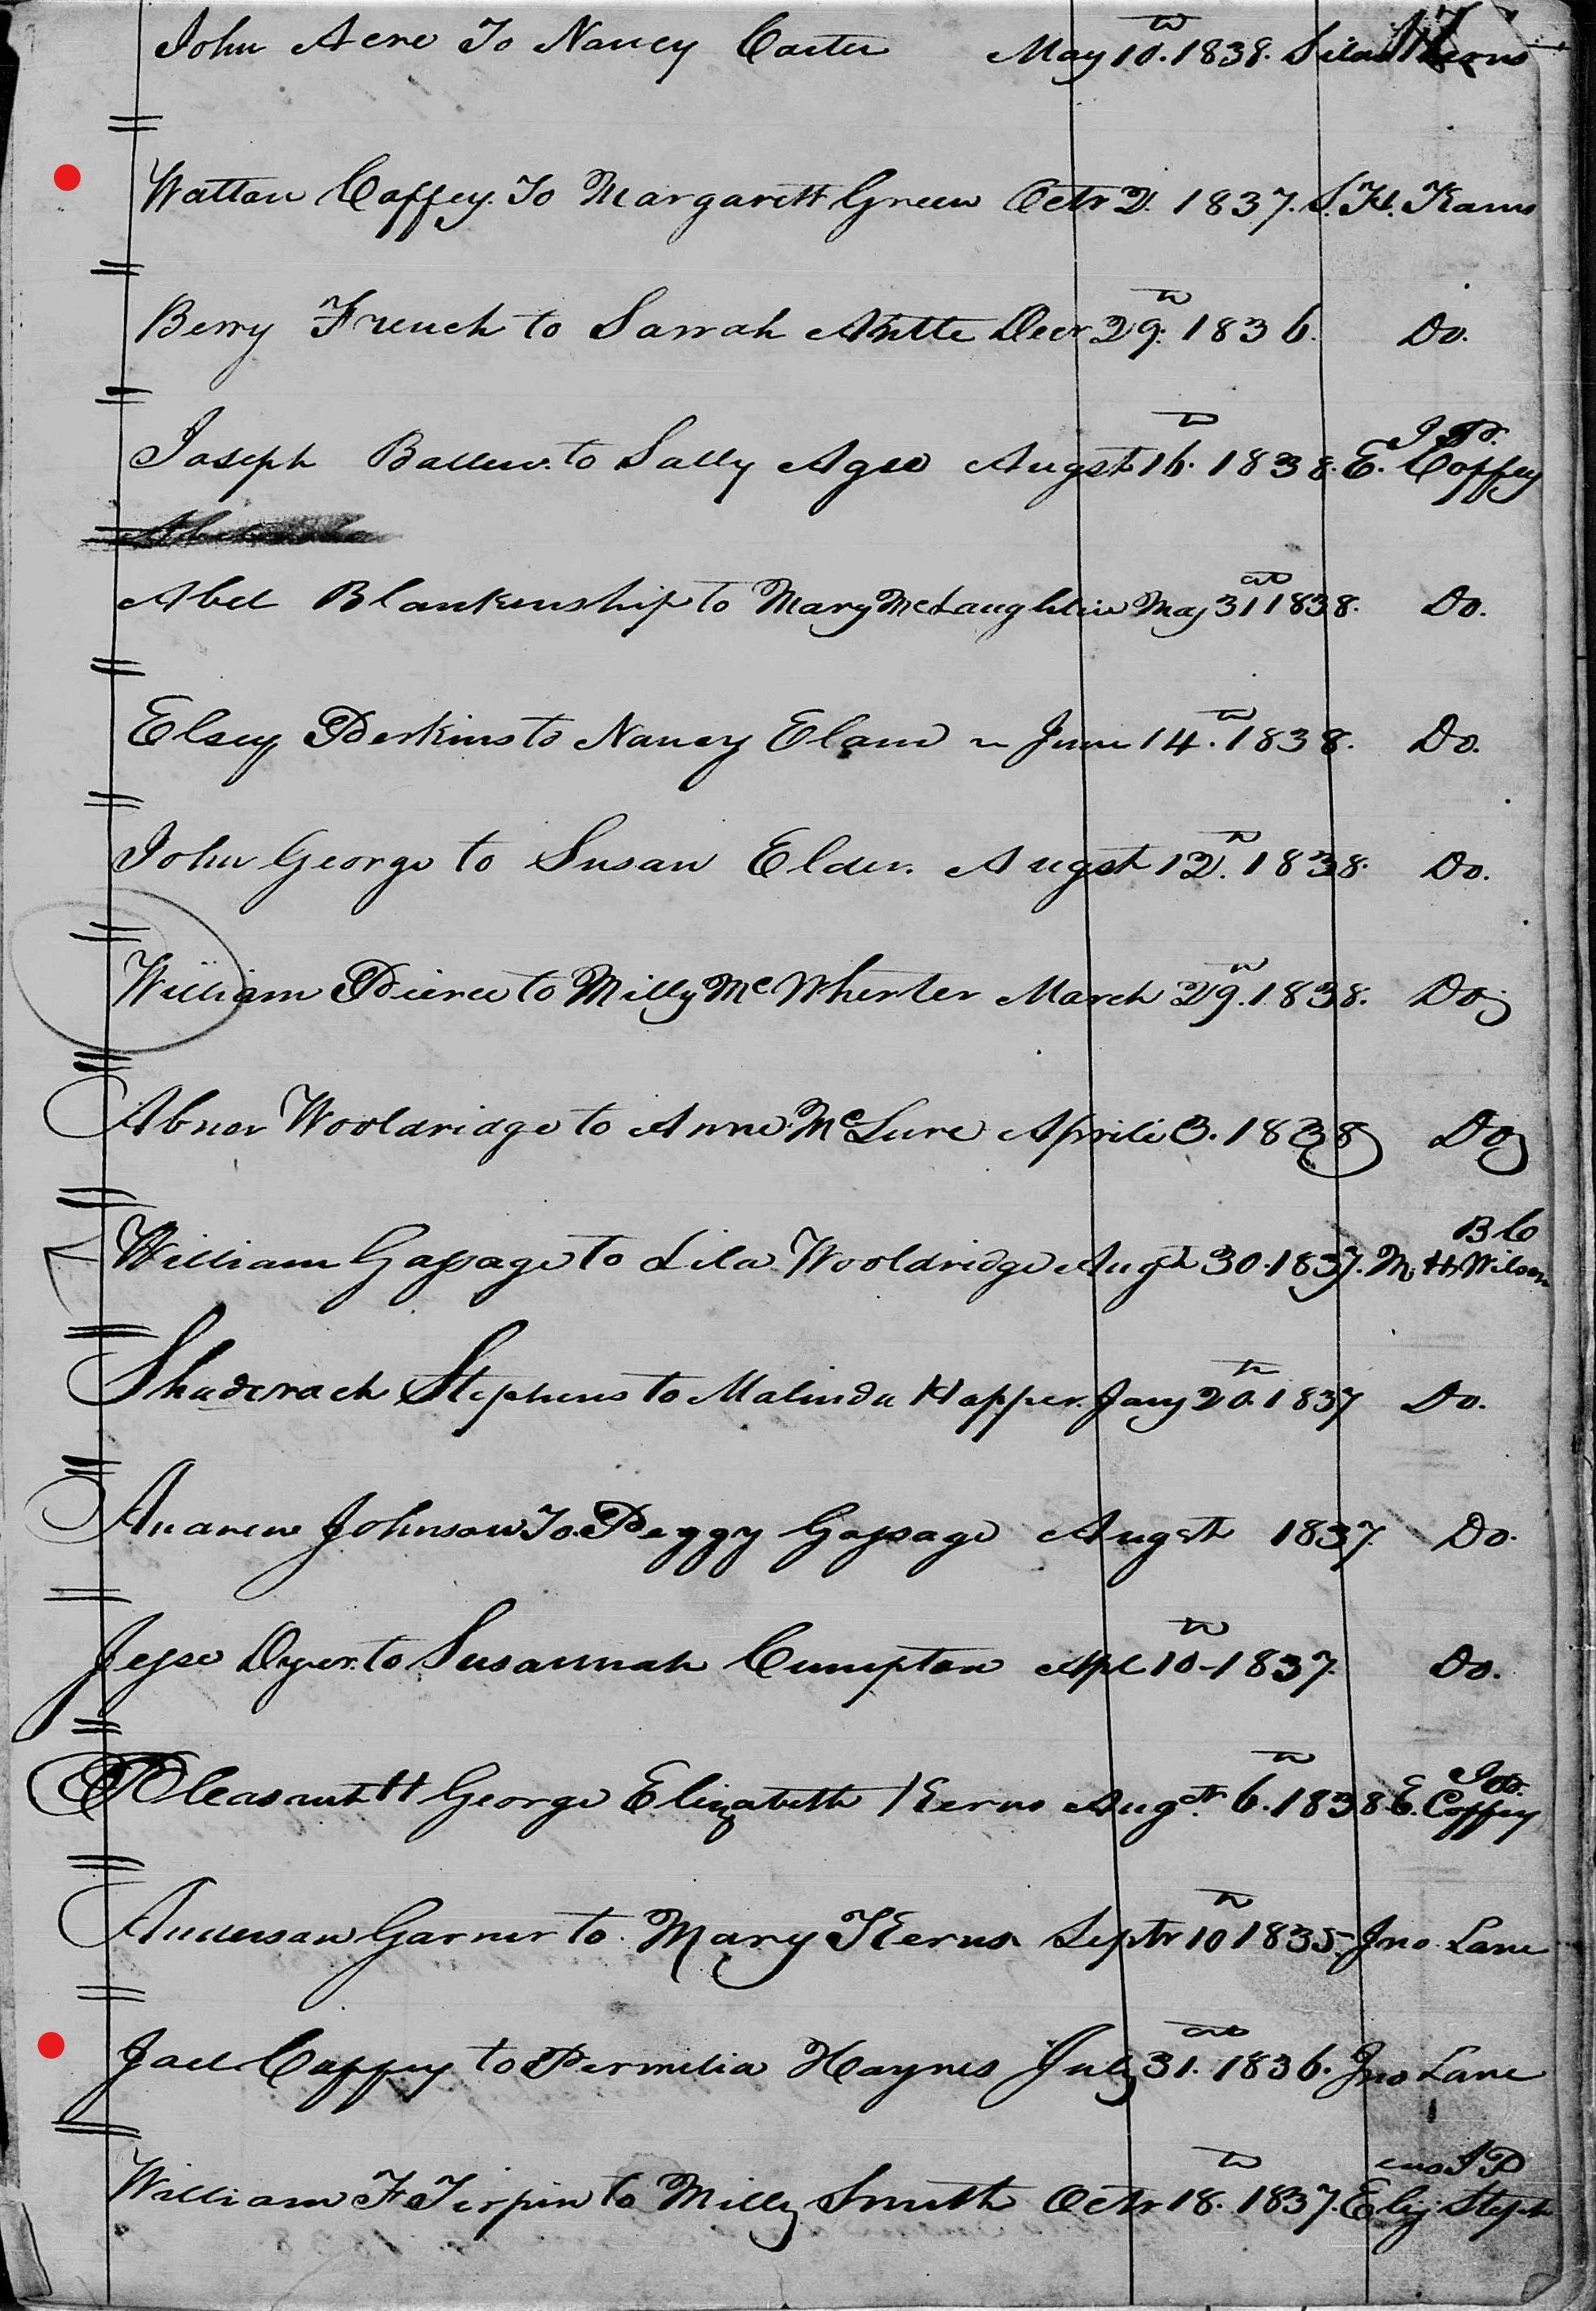 John Acre To Nancy Carter May 10th. 1838. Silas
Wattan Coffey. To Margarett Green Octr 2. 1837. S. H. Karns
Berry French to Sarrah Decr 29th. 1836. Do.
Joseph Ballew. to Sally Agee Augst 16th. 1838. E. Coffey J.P.
Abel Blankenship to Mary McLaughlin May 31st 1838. Do.
Elsey Perkins to Nancy Elam June 14th. 1838. Do.
John George to Susan Elder. Augst 12th. 1838. Do.
William Pierce to Milly McWherter March 29th. 1838. Do
Abner Wooldridge to Anne McLure Aprile 3. 1838 Do
William Gassage to Lila Wooldridge Augt 30. 1837. M. H. Wilson
Shadrach Stephens to Malinda Happer. Jany 20th. 1837 Do.
Andrew Johnson To Peggy Gassage Augst 1837. Do.
Jesse Dyer. to Susannah Cumpton Apl 10th-1837. Do.
Pleasant H George Elizabeth Kerns Augst. 6th. 1838 E. Coffey
Anderson Garner to. Mary Kerns Septr 10th 1835. Jno Lane
Joel Coffey to Permelia Haynes July 31st. 1836. Jno Lane
William F Tirpin to Milly Smith Octr 18th. 1837. Elij. Steph